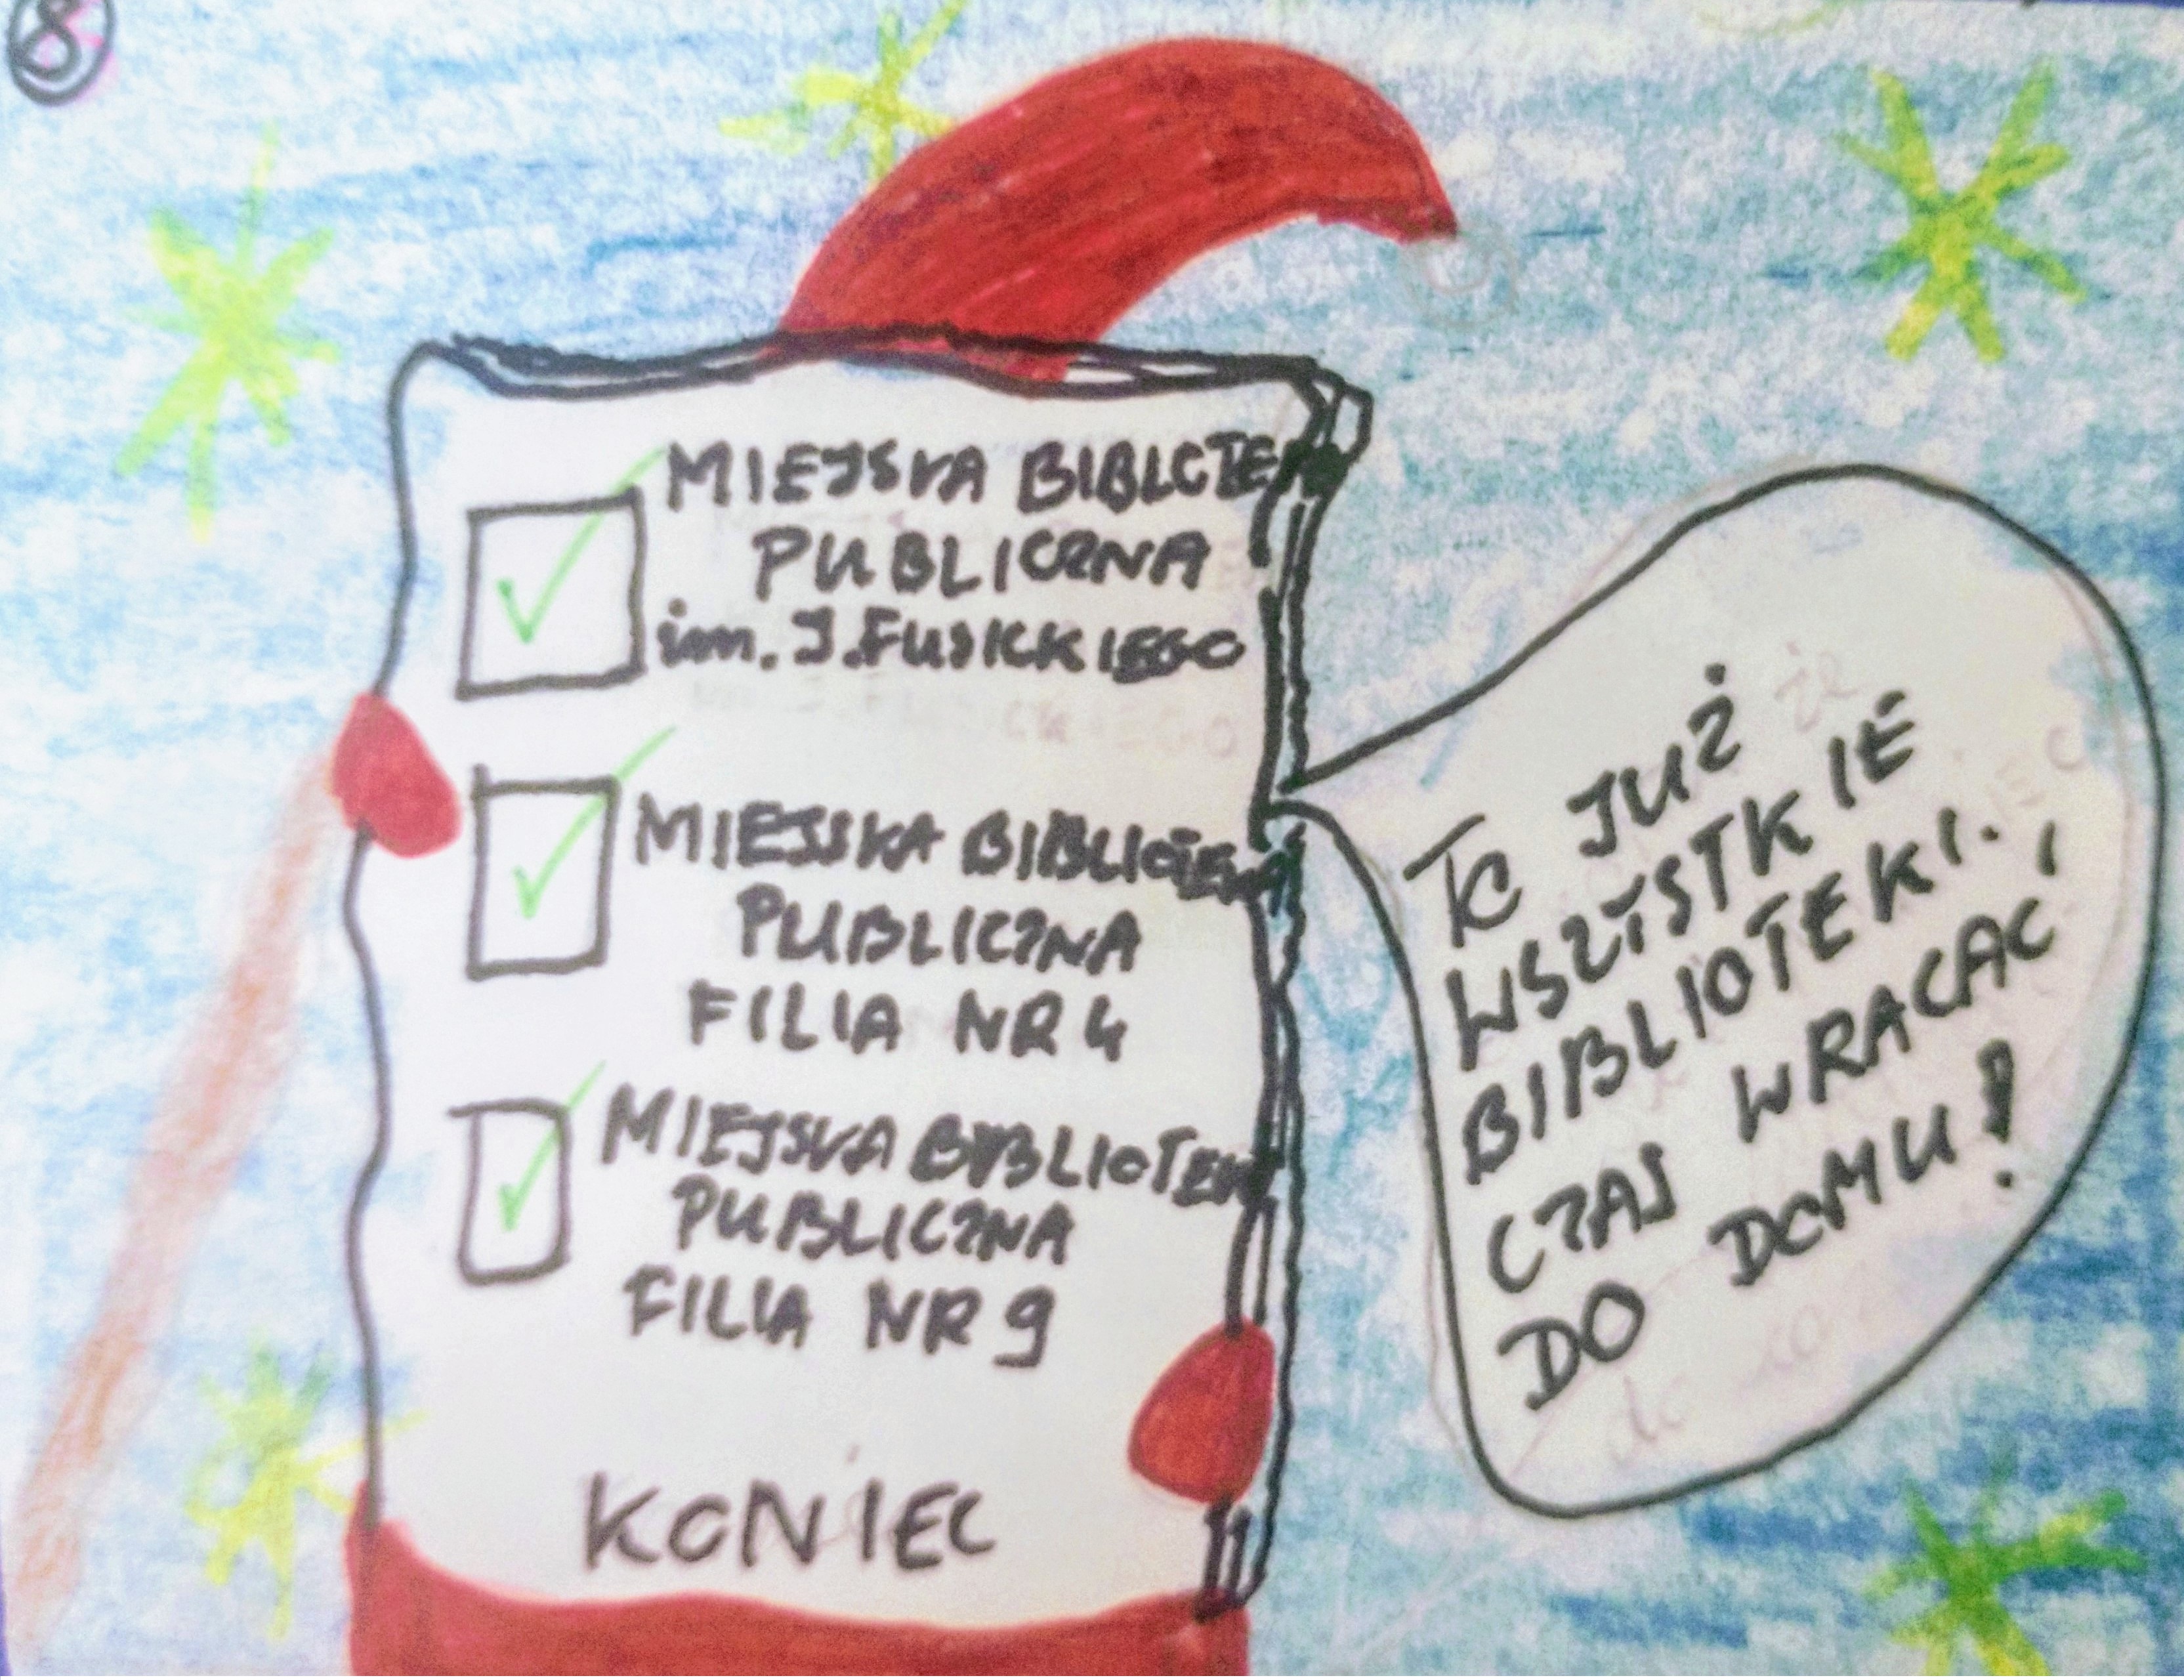 8
MIEJSKA BIBLIOTEKA
PUBLICZNA
im. J. FUSICKIEGO
MIEJSKA BIBLIOTEKA
PUBLICZNA
FILIA NR 4
MIEJSKA BIBLIOTEKA
PUBLICZNA
FILIA NR 9
KONIEC
TO JUŻ
WSZYSTKIE
BIBLIOTEKI.
CZAS WRACAĆ
DO DOMU!